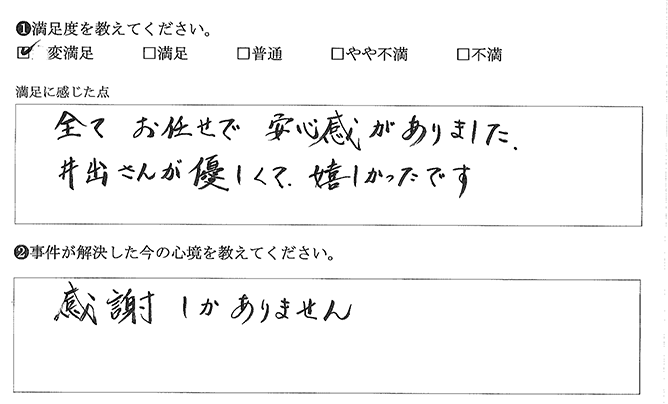 ❶満足度を教えてください。
☑ 変満足 □満足 □普通 □やや不満 □不満
満足に感じた点
全て お任せで 安心感がありました.
井出さんが優しくて、嬉しかったです
❷事件が解決した今の心境を教えてください。
感謝しかありません